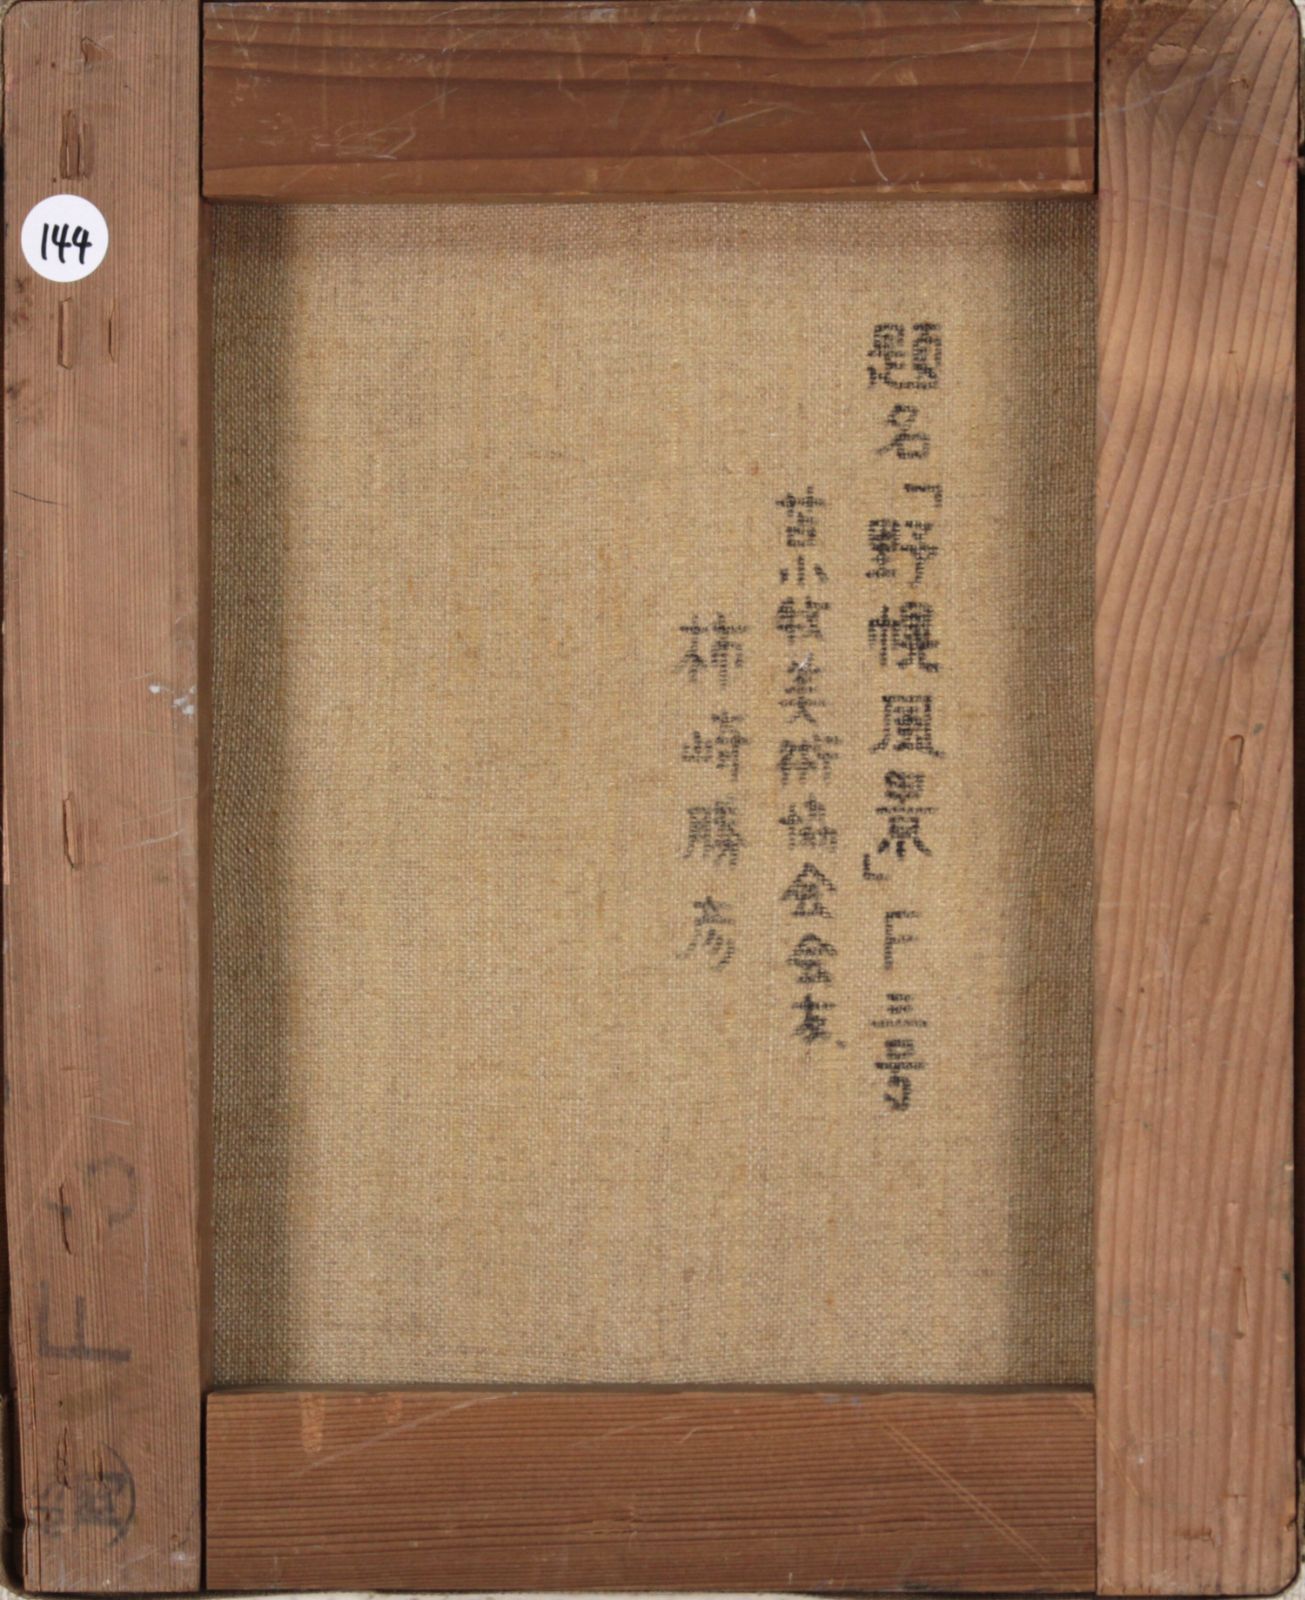 144
題名「野幌風景」F三号
苫小牧美術協会会友、
柿崎勝彦
F3